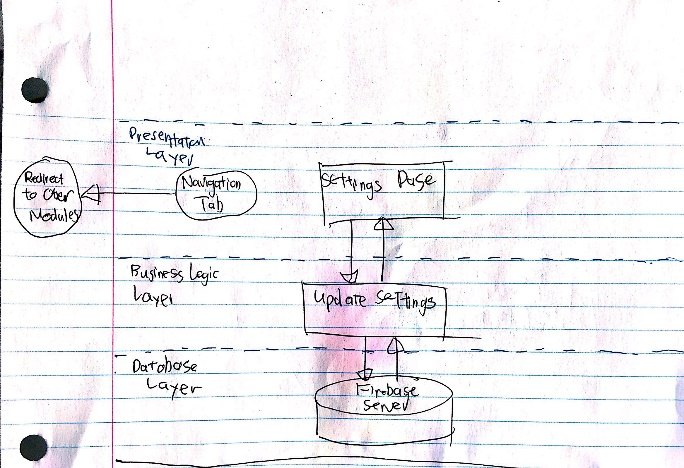 Presentation
Layer
Redirect
to Other
Modules
Navigation
Tab
Settings Page
Business Logic
Layer
Update Settings
Database
Layer
Firebase
Server